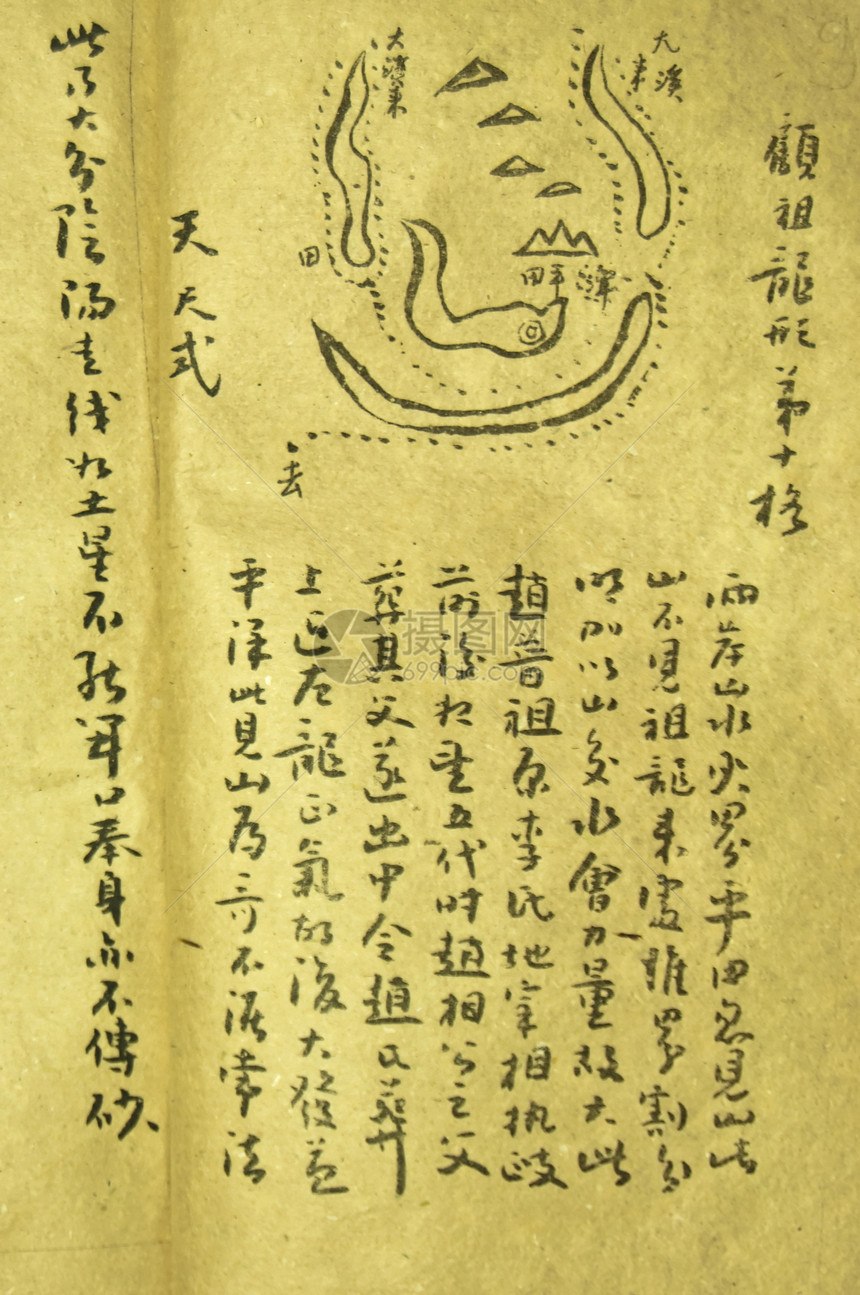 顧祖龍形第十格
大溪
来
大溪来
田
田平
去
両岸山水夾界平田忽見山此
山不見祖龍来處雖界割分
明却以山交水會力量故大此
趙普祖原李氏地宰相執政
前後相望五代時趙相公之父
葬其父遂出中令趙氏葬
上近左龍正氣故後大發益
平洋此見山為奇不泥常法
天尺式
此乃大分陰陽
土星不能
口奉身亦不傳砂
摄图网
699pic.com